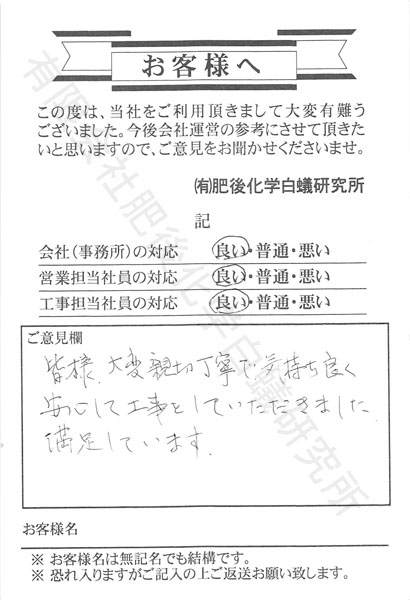 お客様へ
この度は、当社をご利用頂きまして大変有難う
ございました。今後会社運営の参考にさせて頂きた
いと思いますので、ご意見をお聞かせくださいませ。
㈲肥後化学白蟻研究所
記
会社(事務所)の対応 良い・普通・悪い
営業担当社員の対応 良い・普通・悪い
工事担当社員の対応 良い・普通・悪い
ご意見欄
皆様、大変親切丁寧で気持ち良く
安心して工事をしていただきました
満足しています。
お客様名
※ お客様名は無記名でも結構です。
※ 恐れ入りますがご記入の上ご返送お願い致します。
有限会社肥後化学白蟻研究所